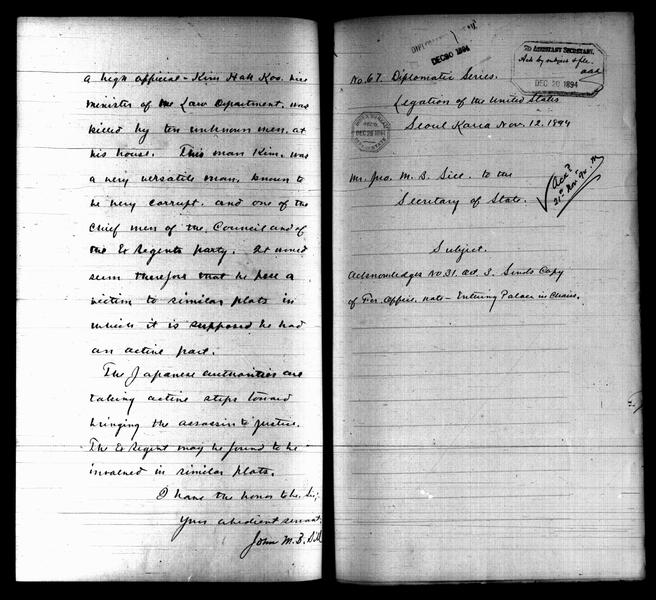 a high official - Kim Hak Koo. vice
minister of the Law Department, was
killed by ten unknown men, at
his house. This man Kim, was
a very versatile man, known to
be very corrupt, and one of the
chief men of the Council and of
the Ex Regents party. It would
seem therefore that he fell a
victim to similar plots in
which it is supposed he had
an active part.
The Japanese authorities are
taking active steps toward
bringing the assassins to justice.
The Ex Regent may be found to be
involved in similar plots.
I have the honor to be, Sir,
Your obedient servant,
John M. B. Sill
DIPLOMATIC
DEC 20 1894
To ASSISTANT SECRETARY,
Ack by subject & file.
DEC 20 1894
No. 67. Diplomatic Series.
Legation of the United States
Seoul Korea Nov. 12. 1894
DEC 20 1894
Mr. Jno. M. B. Sill to the
Secretary of State.
Ackd
Subject.
Acknowledges No. 31. Oct. 3. Sends Copy
of For. Office. note - Entering Palace in Chairs.